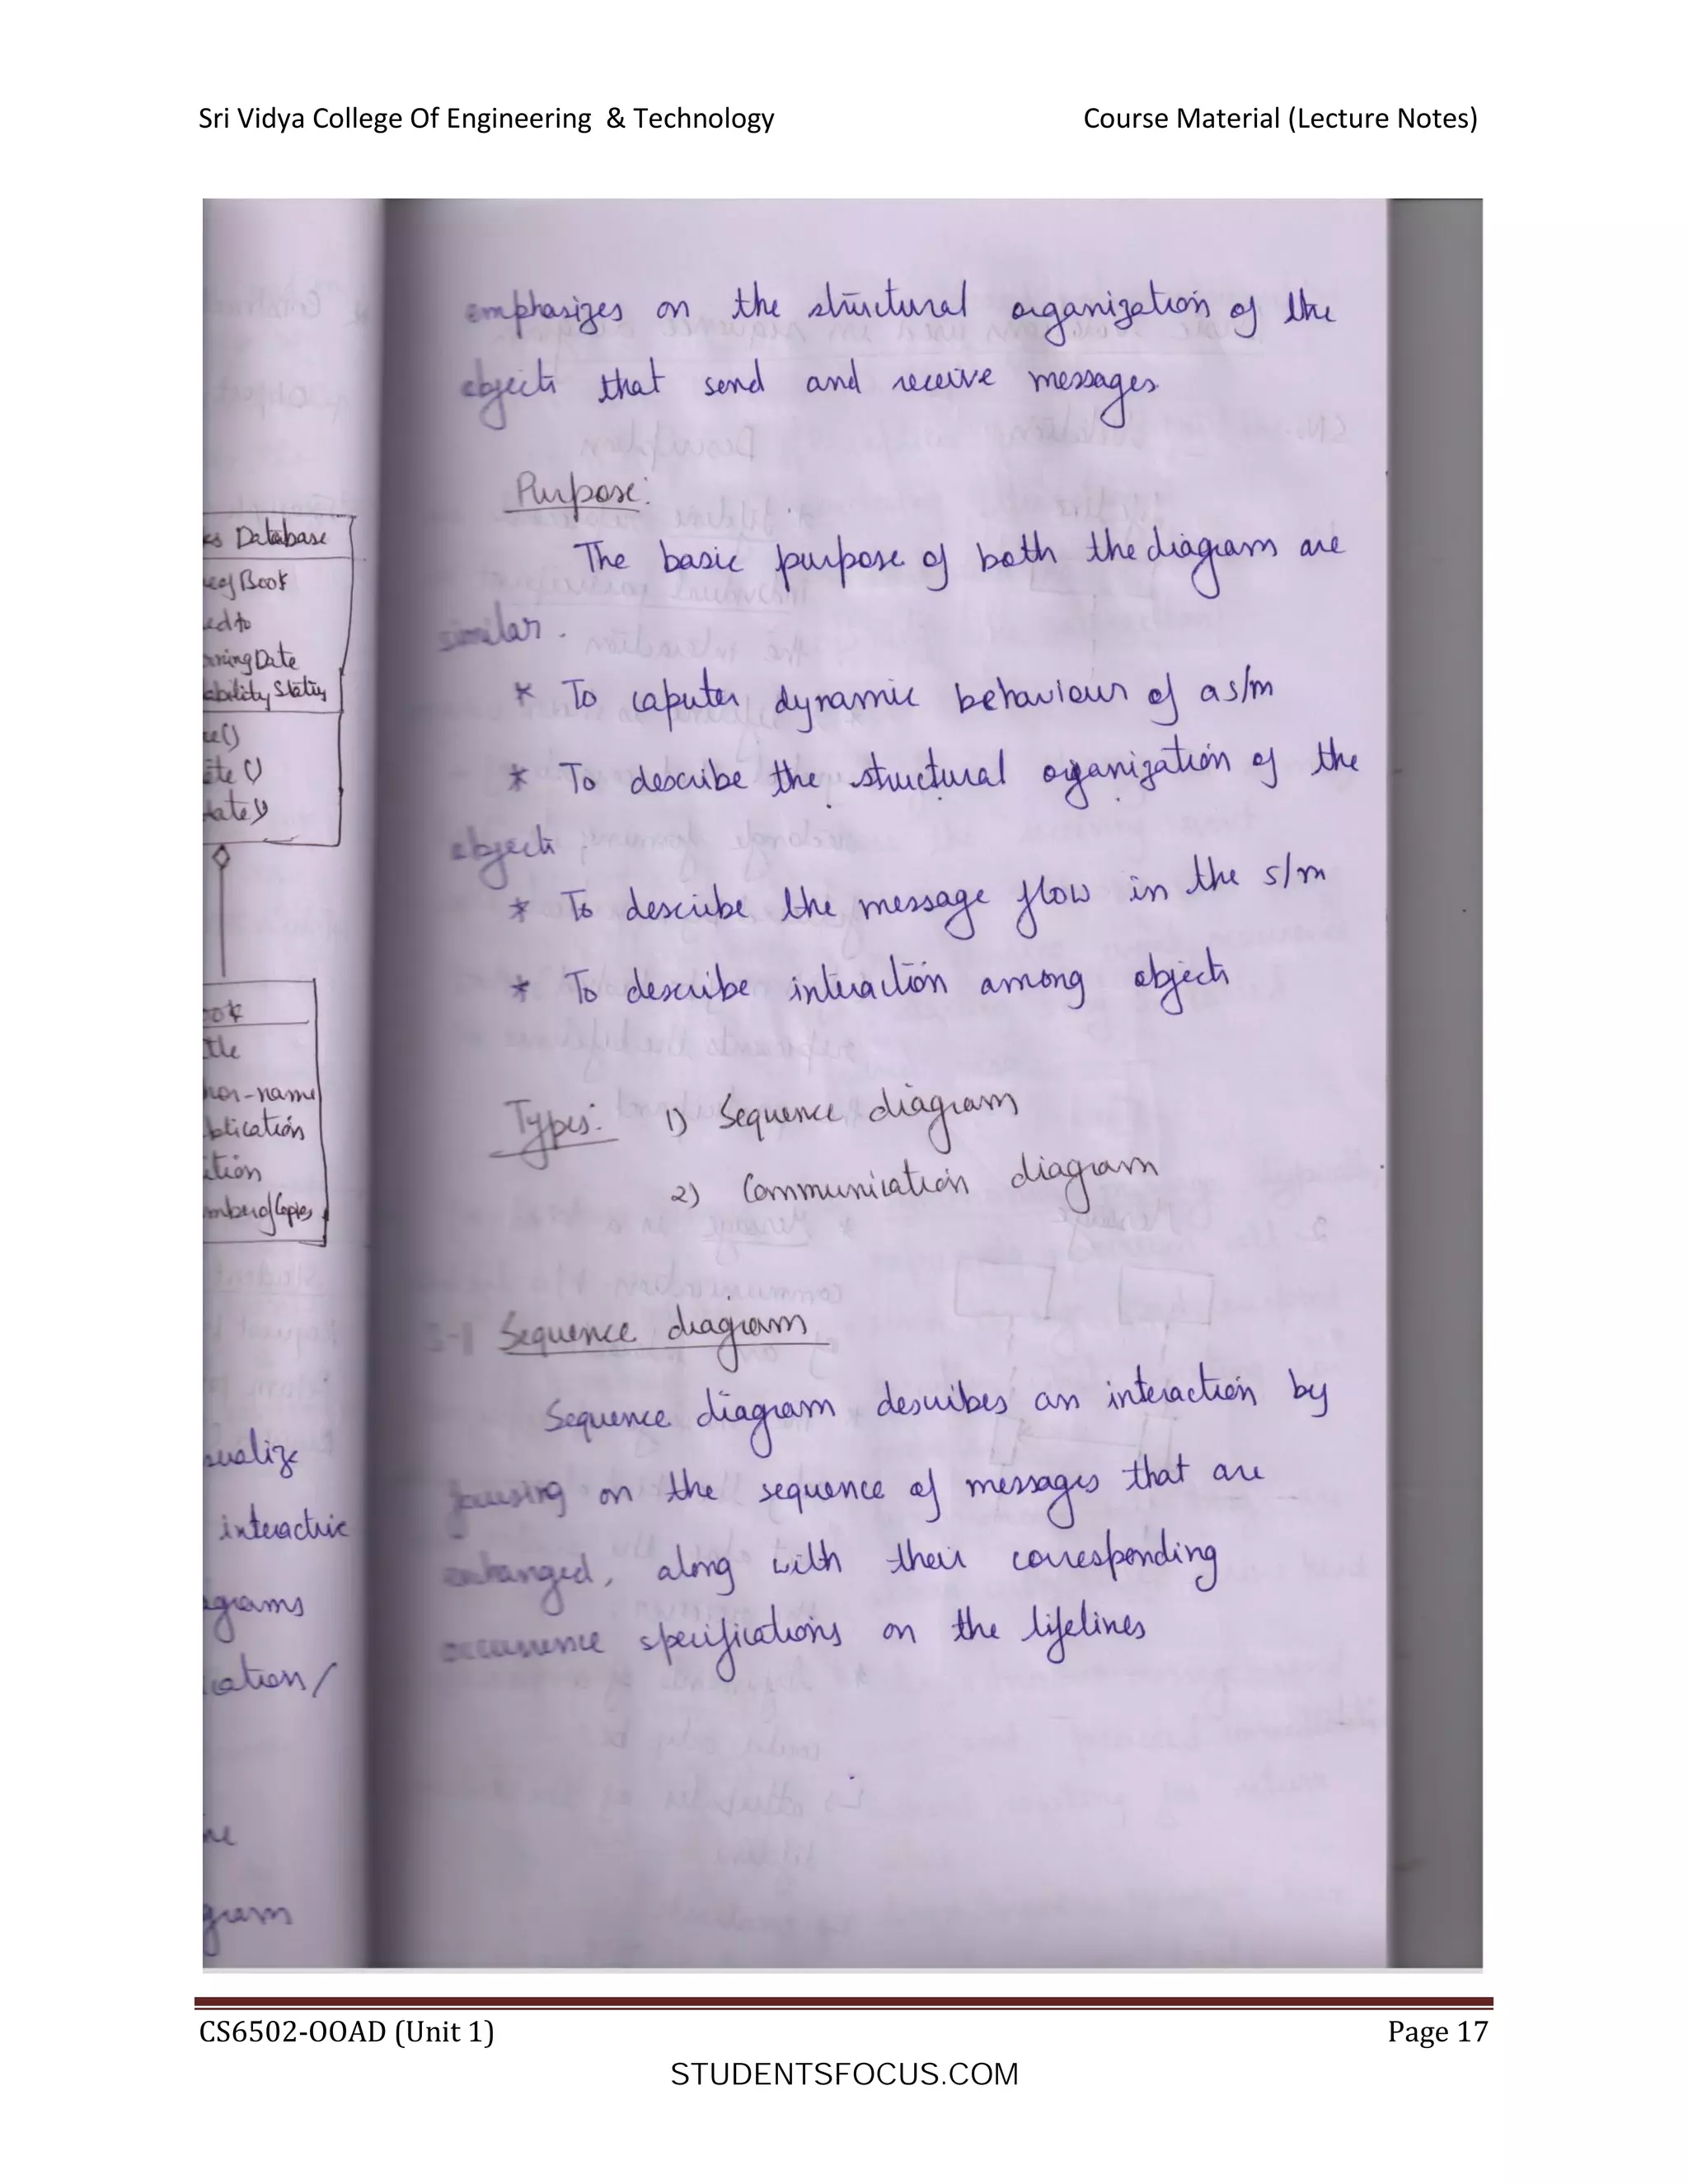 Sri Vidya College Of Engineering & Technology Course Material (Lecture Notes)
emphasizes on the structural organization of the
objects that send and receive messages.
Purpose:
The basic purpose of both the diagram are
similar.
* To caputer dynamic behaviour of a s/m
* To describe the structural organization of the
objects
* To describe the message flow in the s/m
* To describe interaction among objects
Types: 1) Sequence diagram
2) Communication diagram
Sequence diagram
Sequence diagram describes an interaction by
focusing on the sequence of messages that are
exhanged, along with their corresponding
occurrence specifications on the lifelines
Database
Book
Date
Status
name
interactive
CS6502-OOAD (Unit 1) Page 17
STUDENTSFOCUS.COM